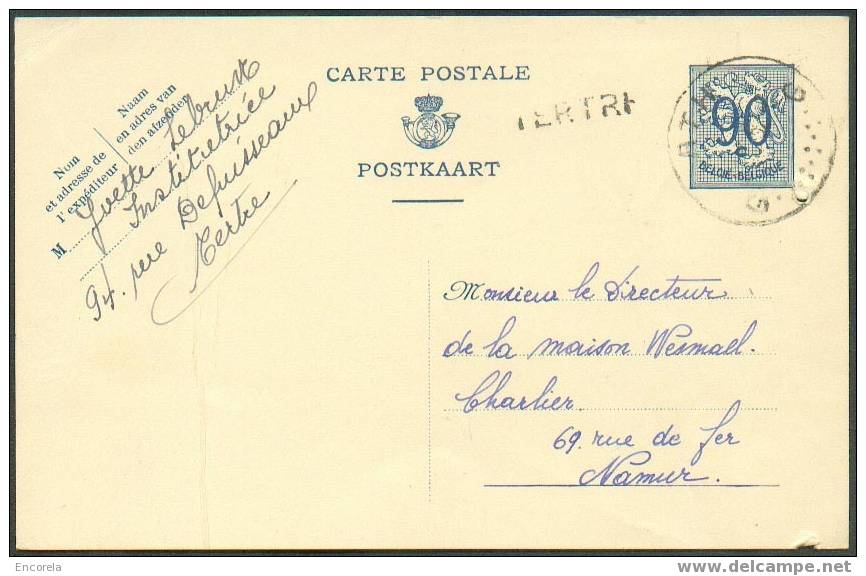 CARTE POSTALE
POSTKAART
TERTRE
90
BELGIË-BELGIQUE
Naam
en adres van
den afzender
Nom
et adresse de
l'expéditeur
M Yvette
Institutrice
94. rue Defuisseaux
Tertre
Monsieur le Directeur
de la maison Wesmael.
Charlier.
69. rue de fer
Namur.
Encorela
www.delcampe.net